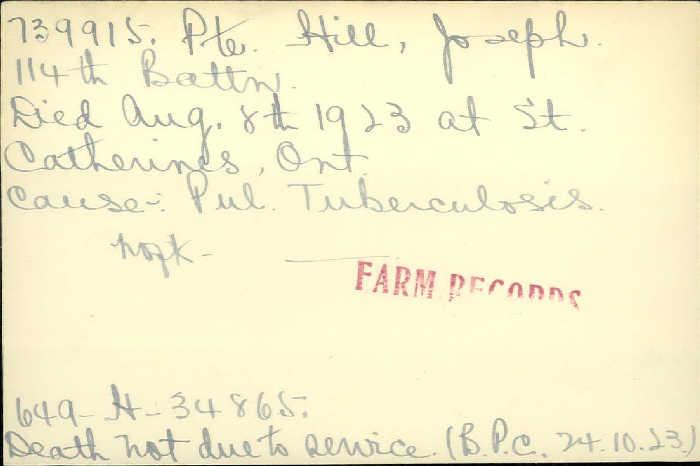 739915. Pte. Hill, Joseph.
114th Battn.
Died Aug. 8th 1923 at St.
Catherines, Ont.
Cause:- Pul. Tuberculosis.
FARM RECORDS
649-H-34865.
Death not due to service. (B.P.C. 24.10.23.)